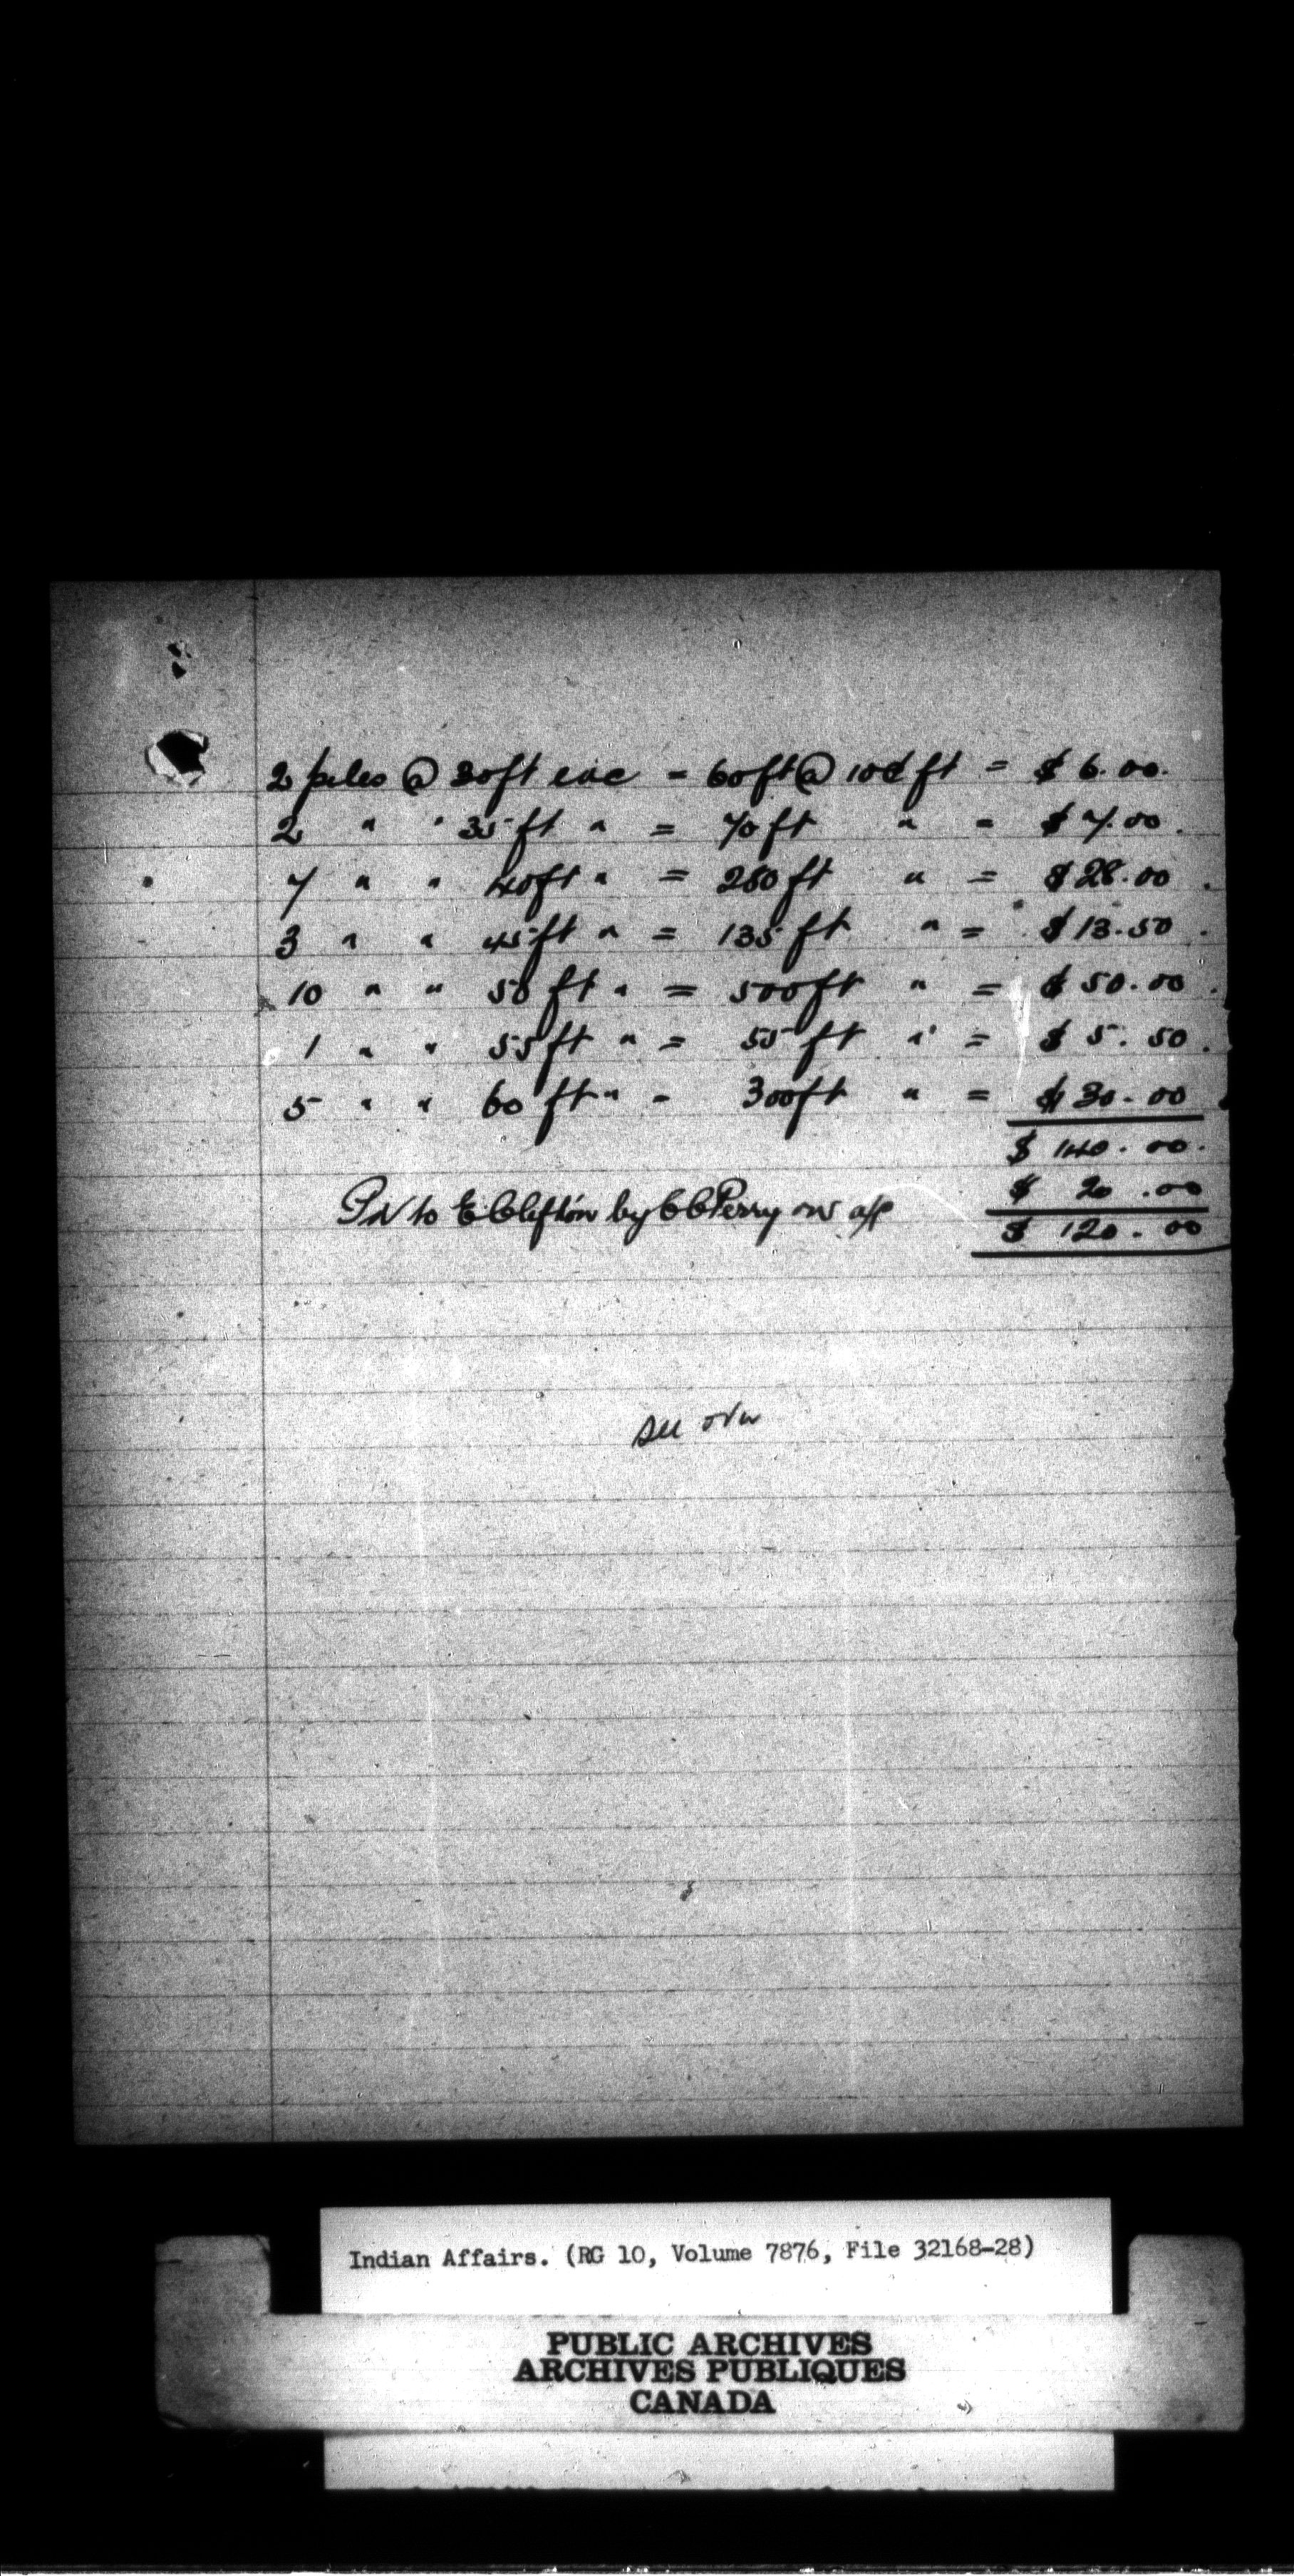 2 piles @ 30ft eac = 60ft @ 10¢ ft = $ 6.00.
2 " " 35ft " = 70ft " = $ 7.00.
7 " " 40ft " = 280ft " = $ 28.00.
3 " " 45ft " = 135ft " = $ 13.50.
10 " " 50ft " = 500ft " = $ 50.00.
1 " " 55ft " = 55ft " = $ 5.50.
5 " " 60ft " = 300ft " = $ 30.00
$ 140.00.
Pd to E Clifton by C C Perry on a/c $ 20.00
$ 120.00
See over
Indian Affairs. (RG 10, Volume 7876, File 32168-28)
PUBLIC ARCHIVES
ARCHIVES PUBLIQUES
CANADA